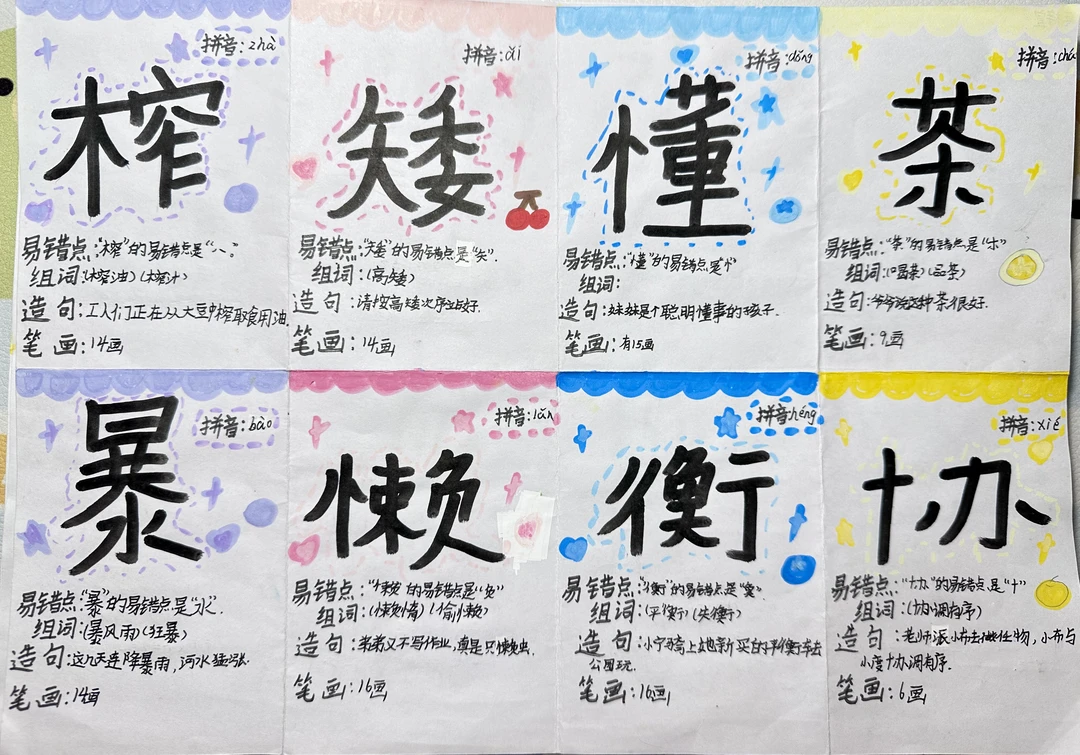 拼音:zhà
榨
易错点:“榨”的易错点是“丶”。
组词:(榨油)(榨汁)
造句:工人们正在从大豆中榨取食用油.
笔画:14画
拼音:ǎi
矮
易错点:“矮”的易错点是“矢”.
组词:(高矮)
造句:请按高矮次序站好.
笔画:14画
拼音:dǒng
懂
易错点:“懂”的易错点是忄
组词:
造句:妹妹是个聪明懂事的孩子.
笔画:有15画
拼音:chá
茶
易错点:“茶”的易错点是“木”
组词:(喝茶)(品茶)
造句:爷爷说这种茶很好.
笔画:9画
拼音:bào
暴
易错点:“暴”的易错点是“水”.
组词:(暴风雨)(狂暴)
造句:这几天连降暴雨,河水猛涨.
笔画:14画
拼音:lǎn
懒
易错点:“懒”的易错点是“负”
组词:(懒惰)(偷懒)
造句:弟弟又不写作业,真是只懒虫.
笔画:16画
拼音:héng
衡
易错点:“衡”的易错点是
组词:(平衡)(失衡)
造句:小宁骑上她新买的平衡车去
公园玩.
笔画:16画
拼音:xié
协
易错点:“协”的易错点是“十”
组词:(协调有序)
造句:老师派小布去做任务,小布与
小度协调有序.
笔画:6画